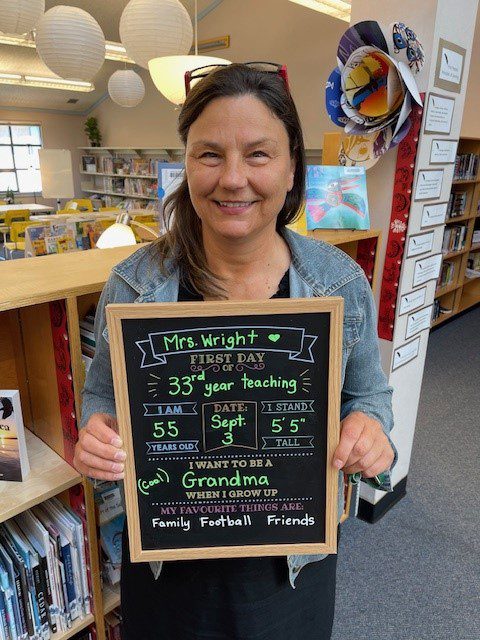 Mrs. Wright ♥
FIRST DAY
OF
33rd year teaching
I AM
55
YEARS OLD
DATE:
Sept.
3
I STAND
5'5"
TALL
I WANT TO BE A
(cool) Grandma
WHEN I GROW UP
MY FAVOURITE THINGS ARE:
Family Football Friends